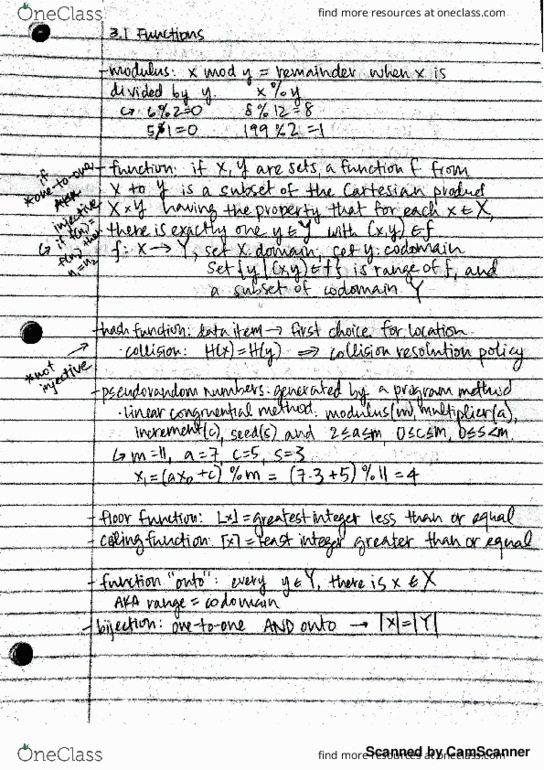 OneClass
find more resources at oneclass.com
3.1 Functions
- modulus: x mod y = remainder when x is
divided by y. x % y
↳ 6%2=0 8%12=8
5%1=0 199%2=1
- function: if X, Y are sets, a function f from
X to Y is a subset of the Cartesian product
X×Y having the property that for each x∈X,
there is exactly one y∈Y with (x,y)∈f
f: X→Y, set X: domain, set y: codomain
set {y | (x,y)∈f} is range of f, and
a subset of codomain Y
if
*one-to-one
AKA
injective
↳ if f(n₁)=
f(n₂) then
n₁=n₂
- hash function: data item → first choice for location
· collision: H(x)=H(y) ⟹ collision resolution policy
*not
injective
- pseudorandom numbers: generated by a program method
· linear congruential method: modulus(m), multiplier(a),
increment(c), seed(s) and 2≤a≤m, 0≤c≤m, 0≤s<m
↳ m=11, a=7, c=5, s=3
x₁=(ax₀+c) % m = (7·3+5) % 11 = 4
- floor function: ⌊x⌋=greatest integer less than or equal
- ceiling function: ⌈x⌉=least integer greater than or equal
- function "onto": every y∈Y, there is x∈X
AKA range = codomain
- bijection: one-to-one AND onto → |X|=|Y|
OneClass
find more resources at oneclass.com
Scanned by CamScanner